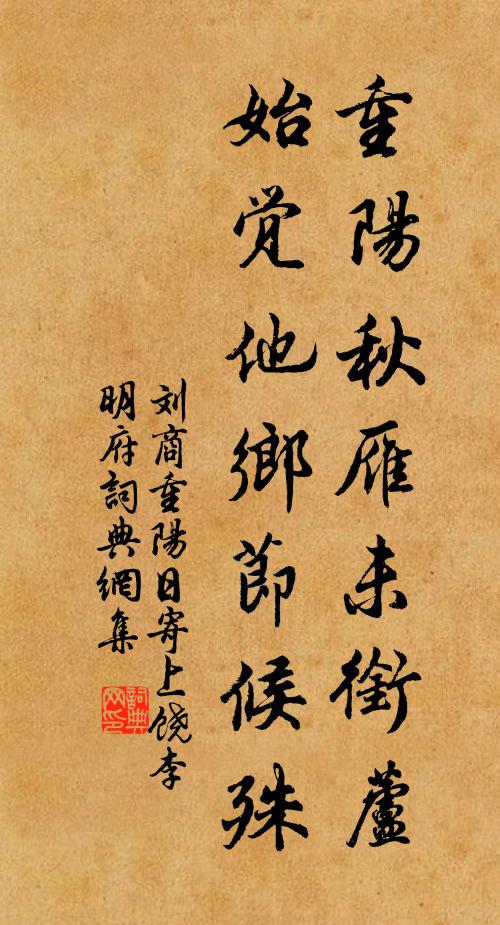 重陽秋雁未銜蘆
始覚他鄉節候殊
刘商重陽日寄上饶李
明府詞典網集
詞典
网印